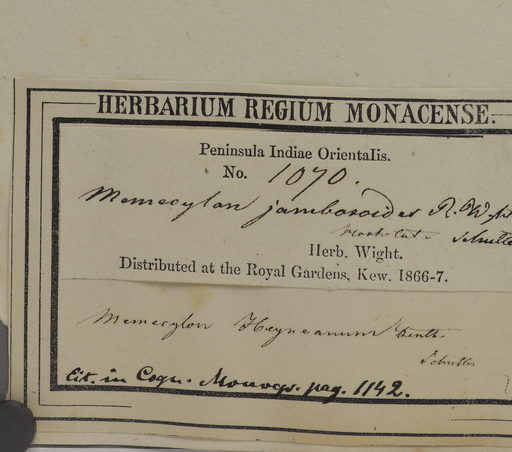 HERBARIUM REGIUM MONACENSE.
Peninsula Indiae Orientalis.
No. 1070.
Memecylon jamboroides R. W.
Herb. Wight.
Distributed at the Royal Gardens, Kew. 1866-7.
Memecylon Heyneanum Benth.
Cit. in Cogn. Monogr. pag. 1142.